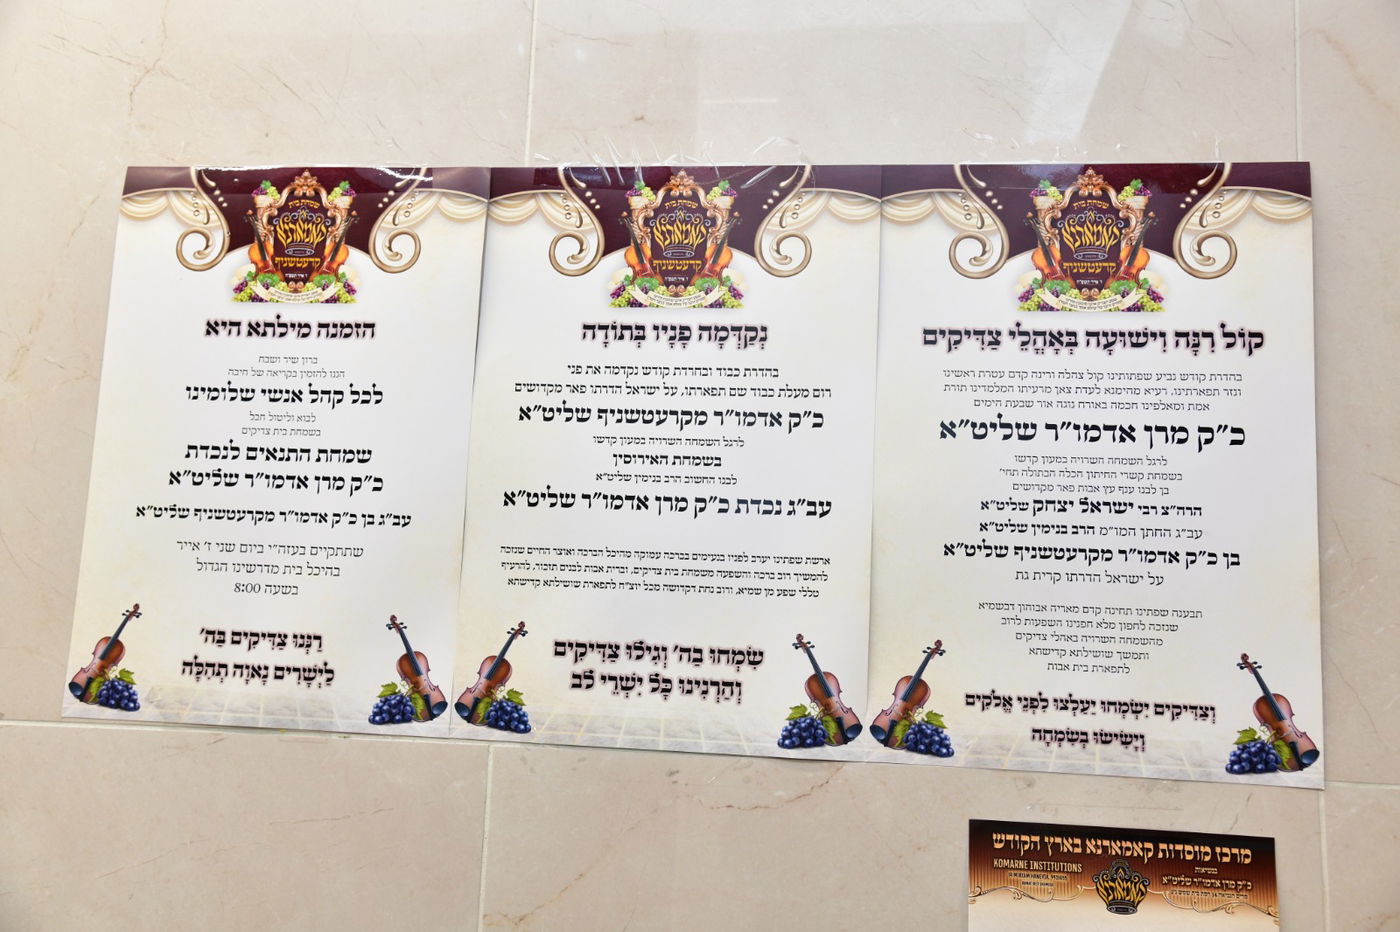 שמחת בית
קאמארנא
קרעטשניף
קוֹל רִנָּה וִישׁוּעָה בְּאָהֳלֵי צַדִּיקִים
בהדרת קודש נביע שפתותינו קול צהלה ורינה קדם עטרת ראשינו
ונזר תפארתינו, רעיא מהימנא לעדת צאן מרעיתו המלמדינו תורת
אמת ומאלפינו חכמה באורח נוגה אור שבעת הימים
כ״ק מרן אדמו״ר שליט״א
לרגל השמחה השרויה במעון קדשו
בשמחת קשרי החיתון הכלה הבתולה תחי׳
בן לבנו ענף עץ אבות פאר מקדושים
הרה״צ רבי ישראל יצחק שליט״א
עב״ג החתן המו״מ הרב בנימין שליט״א
בן כ״ק אדמו״ר מקרעטשניף שליט״א
על ישראל הדרתו קרית גת
תבענה שפתינו תחינה קדם מאריה אבוהון דבשמיא
שנזכה לחפון מלא חפנינו השפעות לרוב
מהשמחה השרויה באהלי צדיקים
ותמשך שושילתא קדישתא
לתפארת בית אבות
וְצַדִּיקִים יִשְׂמְחוּ יַעַלְצוּ לִפְנֵי אֱלֹקִים
וְיָשִׂישׂוּ בְשִׂמְחָה
שמחת בית
קאמארנא
קרעטשניף
נְקַדְּמָה פָנָיו בְּתוֹדָה
בהדרת כבוד ובחרדת קודש נקדמה את פני
רום מעלת כבוד שם תפארתו, על ישראל הדרתו פאר מקדושים
כ״ק אדמו״ר מקרעטשניף שליט״א
לרגל השמחה השרויה במעון קדשו
בשמחת האירוסין
לבנו החשוב הרב בנימין שליט״א
עב״ג נכדת כ״ק מרן אדמו״ר שליט״א
ארשת שפתינו יערב לפניו בנעימים בברכה עמוקה מהיכל הברכה ואוצר החיים שנזכה
להמשיך רוב ברכה והשפעה משמחת בית צדיקים, וברית אבות לבנים תזכור, להרעיף
טללי שפע מן שמיא, ורוב נחת דקדושה מכל יוצ״ח לתפארת שושילתא קדישתא
שִׂמְחוּ בַה׳ וְגִילוּ צַדִּיקִים
וְהַרְנִינוּ כָּל יִשְׁרֵי לֵב
שמחת בית
קאמארנא
קרעטשניף
הזמנה מילתא היא
ברון שיר ושבח
הננו להזמין בקריאה של חיבה
לכל קהל אנשי שלומינו
לבוא וליטול חבל
בשמחת בית צדיקים
שמחת התנאים לנכדת
כ״ק מרן אדמו״ר שליט״א
עב״ג בן כ״ק אדמו״ר מקרעטשניף שליט״א
שתתקיים בעזה״י ביום שני ז׳ אייר
בהיכל בית מדרשינו הגדול
בשעה 8:00
רַנְּנוּ צַדִּיקִים בַּה׳
לַיְשָׁרִים נָאוָה תְהִלָּה
מרכז מוסדות קאמארנא בארץ הקודש
בנשיאות
כ״ק מרן אדמו״ר שליט״א
KOMARNE INSTITUTIONS
קאמארנא